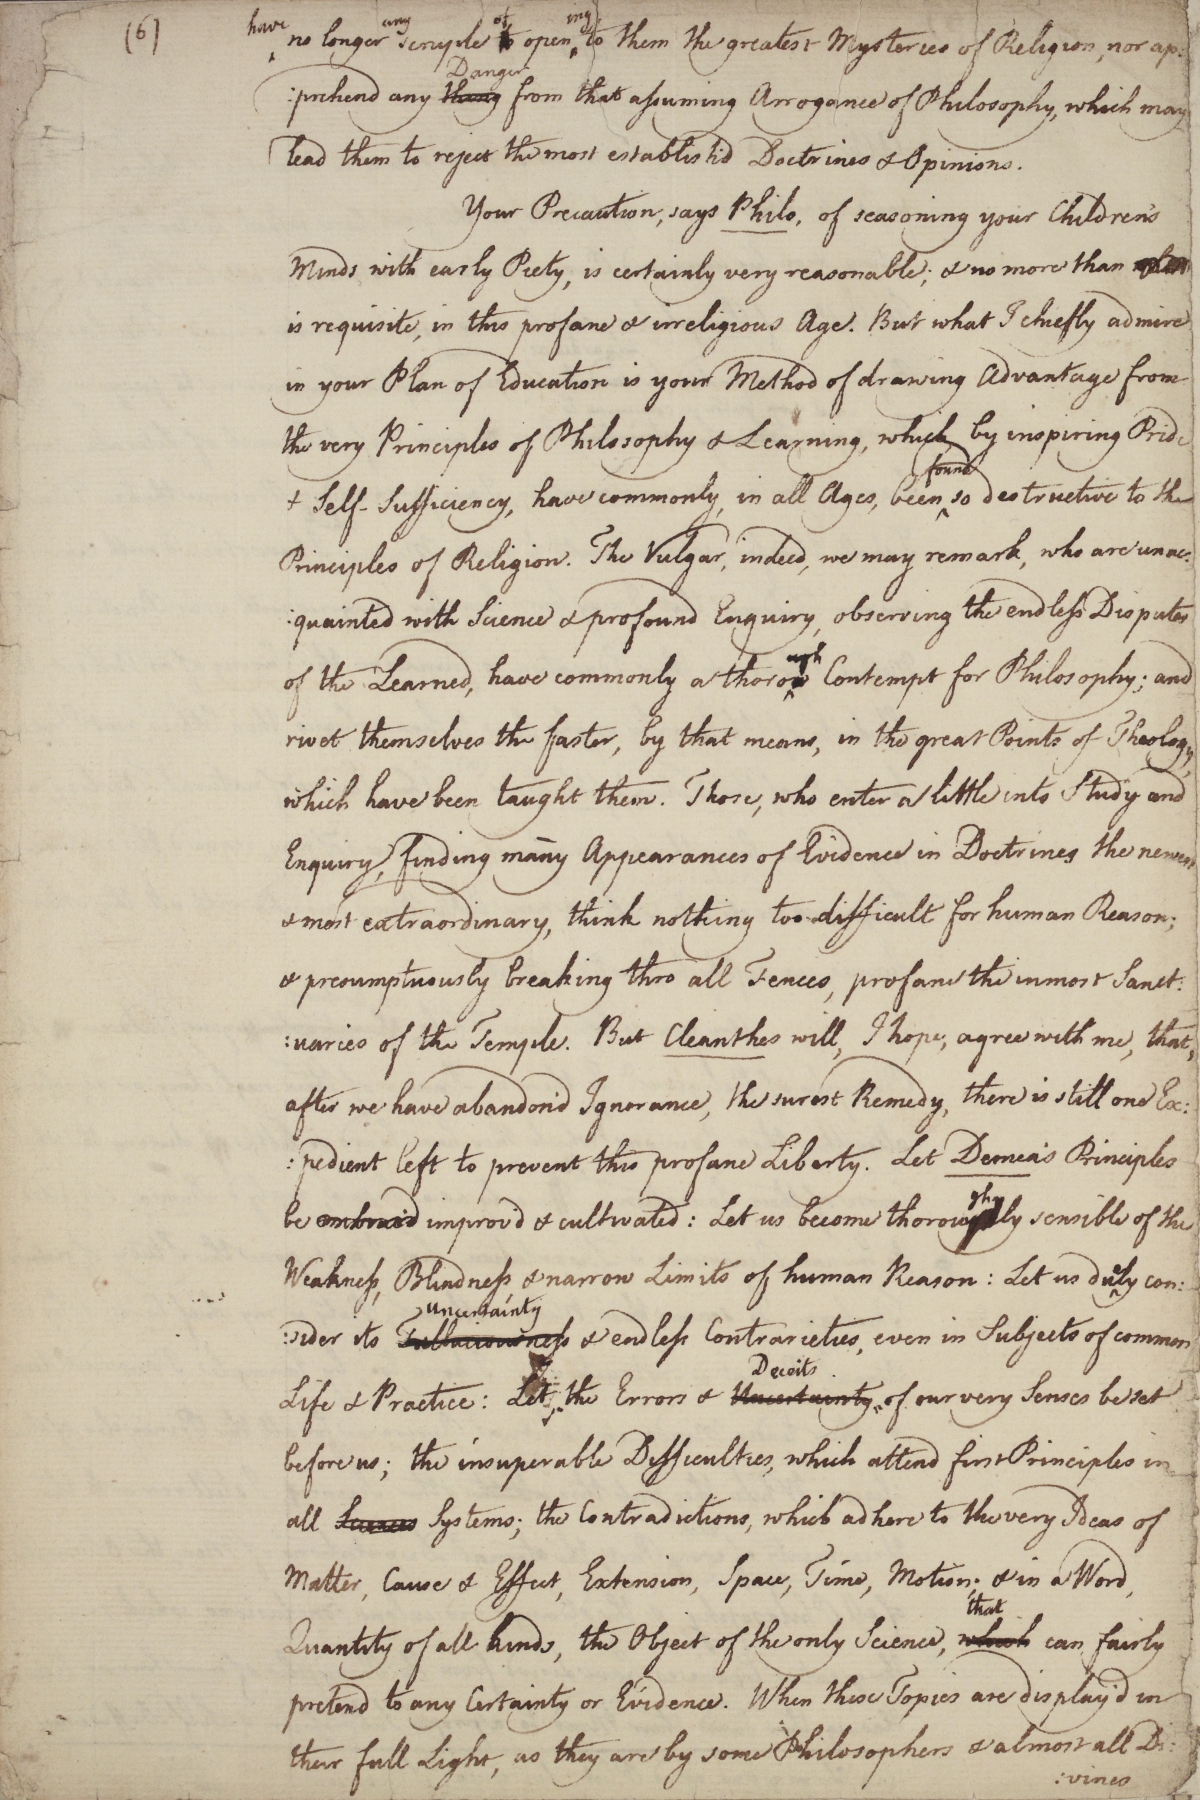 (6)
have no longer any scruple of opening to them the greatest Mysteries of Religion, nor ap:
:prehend any thing Danger from that assuming Arrogance of Philosophy, which may
lead them to reject the most establish'd Doctrines & Opinions.
Your Precaution, says Philo, of seasoning your Children's
Minds with early Piety, is certainly very reasonable; & no more than
is requisite, in this profane & irreligious Age. But what I chiefly admire
in your Plan of Education is your Method of drawing Advantage from
the very Principles of Philosophy & Learning, which, by inspiring Pride
& Self-Sufficiency, have commonly, in all Ages, been found so destructive to the
Principles of Religion. The Vulgar, indeed, we may remark, who are unac:
:quainted with Science & profound Enquiry, observing the endless Disputes
of the Learned, have commonly a thorough Contempt for Philosophy; and
rivet themselves the faster, by that means, in the great Points of Theology,
which have been taught them. Those, who enter a little into Study and
Enquiry, finding many Appearances of Evidence in Doctrines the newest
& most extraordinary, think nothing too difficult for human Reason;
& presumptuously breaking thro all Fences, profane the inmost Sanct:
:uaries of the Temple. But Cleanthes will, I hope, agree with me, that,
after we have abandon'd Ignorance, the surest Remedy, there is still one Ex:
:pedient left to prevent this profane Liberty. Let Demea's Principles
be embrac'd improv'd & cultivated: Let us become thoroughly sensible of the
Weakness, Blindness & narrow Limits of human Reason: Let us duely con:
:sider its Fallaciousness uncertainty & endless Contrarieties, even in Subjects of common
Life & Practice: Let the Errors & Uncertainty Deceits of our very Senses be set
before us; the insuperable Difficulties, which attend first Principles in
all Sciences Systems; the Contradictions, which adhere to the very Ideas of
Matter, Cause & Effect, Extension, Space, Time, Motion; & in a Word,
Quantity of all kinds, the Object of the only Science, which that can fairly
pretend to any Certainty or Evidence. When these Topics are display'd in
their full Light, as they are by some Philosophers & almost all Di:
:vines